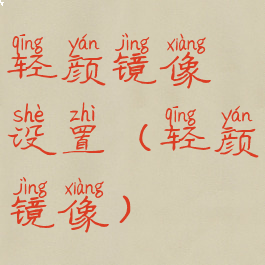 qīng yán jìng xiàng
轻颜镜像
shè zhì qīng yán
设置（轻颜
jìng xiàng
镜像）